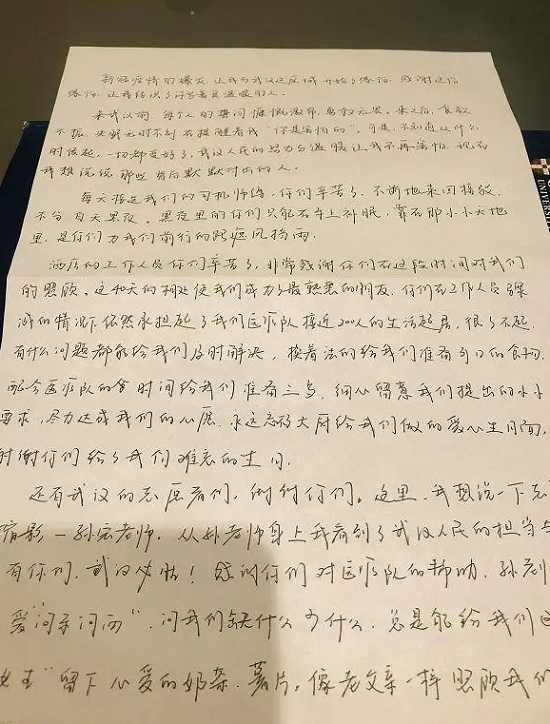 新冠疫情的爆发,让我与武汉这座城开始了缘份,感谢这份
缘份,让我结识了许多善良温暖的人。
来武汉前,每个人的集间慷慨激昂,勇敢无畏。来之后,食欲
不振,失眠无时不刻不在提醒着我"你是害怕的"。可是,不知道从什么
时候起,一切都变好了,武汉人民的努力与热情让我不再害怕,现在
我想说说那些背后默默付出的人。
每天接送我们的司机师傅,你们辛苦了,不断地来回接驳,
不分白天黑夜。黑夜里的你们只能在车上补眠,靠在那小小天地
里,是你们为我们前行的路遮风挡雨。
酒店的工作人员你们辛苦了,非常感谢你们在这段时间对我们
的照顾。这40天的相处使我们成为了最熟悉的朋友,你们在工作人员骤
减的情况下依然承担起了我们医疗队接近200人的生活起居,很了不起。
有什么问题都能给我们及时解决,换着法的给我们准备可口的食物,
配合医疗队的食时间给我们准备三餐,细心留意我们提出的小小
要求,尽力达成我们的心愿,永远忘不了大厨给我们做的爱心生日面,
谢谢你们给了我们难忘的生日。
还有武汉的志愿者们,谢谢你们。这里,我想说一下志
缩影—孙宏老师,从孙老师身上我看到了武汉人民的担当与
有你们,武汉必胜!感谢你们对医疗队的帮助,孙老师
爱"问东问西",问我们缺什么少什么,总是能给我们
女生"留下心爱的奶茶、薯片,像老父亲一样照顾我们
UNIVERSI